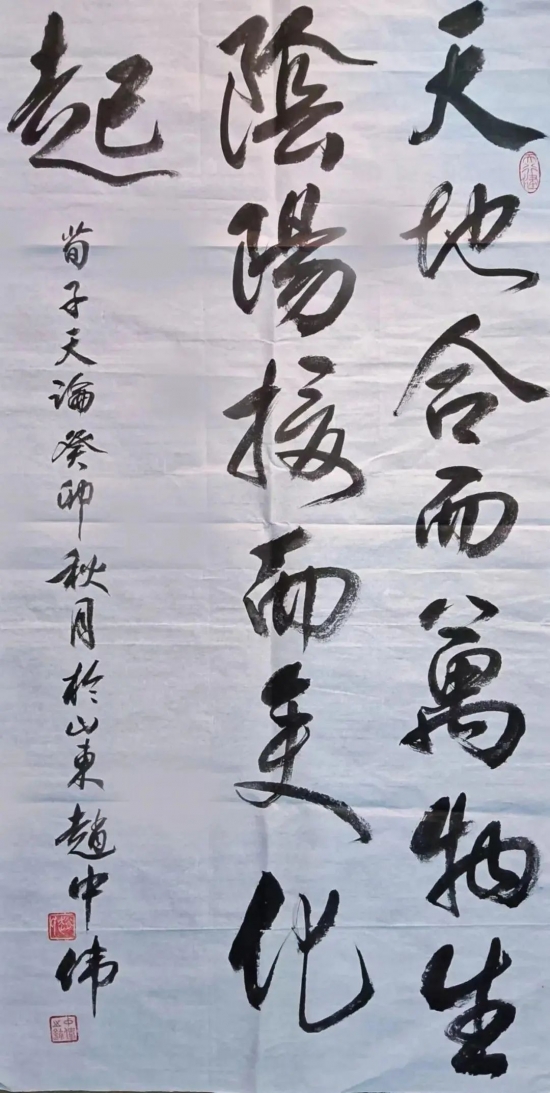 天地合而萬物生
陰陽接而变化
起
荀子天論癸卯秋月於山東趙中伟